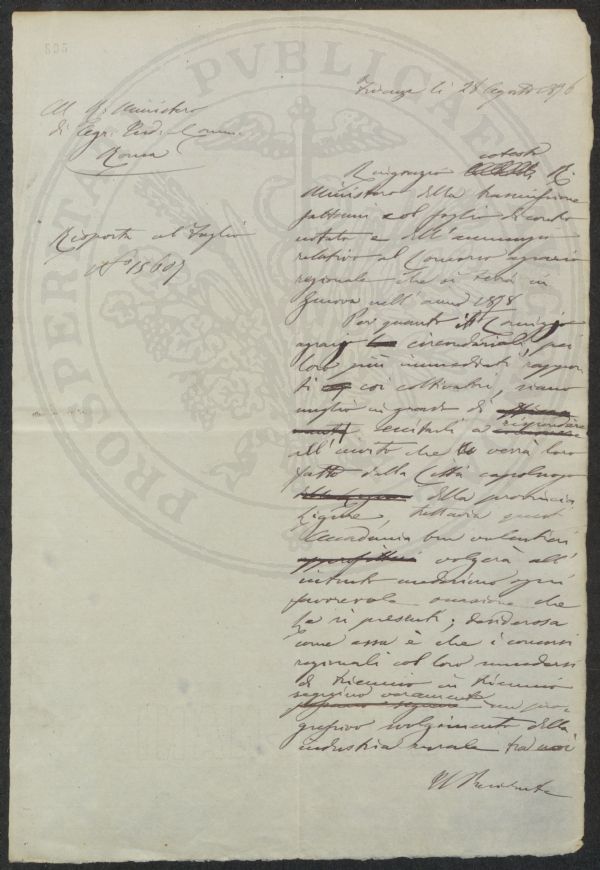 Firenze li 28 Agosto 1876
Al R. Ministero
di Agr. Ind. e Comm.
Roma
Risposta al Foglio
N° 15607
Ringrazio cotesto R.
Ministero della trasmissione
fattami col foglio di contro
notato e dell'annunzio
relativo al Concorso agrario
regionale che si terrà in
Genova nell'anno 1878
Per quanto i Comizi
agrari circondariali, pei
loro più immediati rappor
ti coi coltivatori, siano
meglio in grado di
eccitarli a rispondere
all'invito che verrà loro
fatto dalla Città capoluogo
della provincia
Ligure, tuttavia questa
Accademia ben volentieri
volgerà all'
intento medesimo ogni
favorevole occasione che
le si presenti; desiderosa
come essa è che i concorsi
regionali col loro succedersi
di triennio in triennio
segnino veramente un pro
gressivo svolgimento della
industria rurale tra noi
Il Presidente